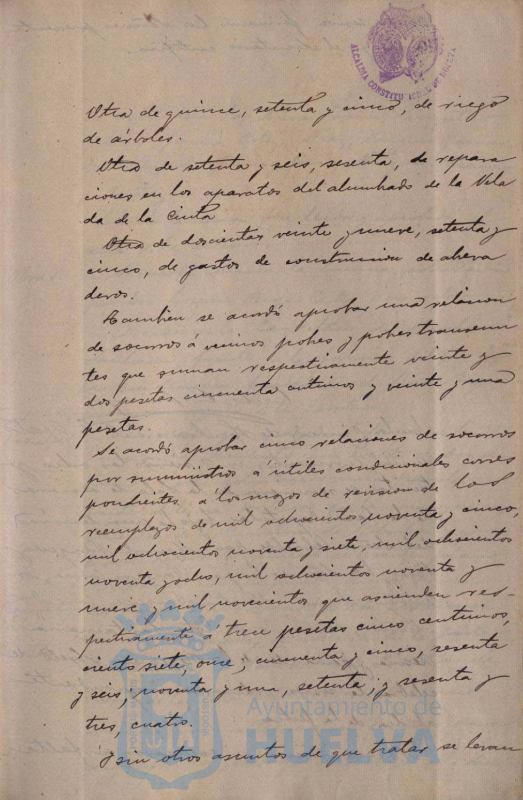 ALCALDIA CONSTITUCIONAL DE HUELVA
Otra de quince, setenta y cinco, de riego
de árboles.
Otra de setenta y seis, sesenta, de repara
ciones en los aparatos del alumbrado de la Vela
da de la Cinta
Otra de doscientas veinte y nueve, setenta y
cinco, de gastos de construccion de abreva
deros.
Tambien se acordó aprobar una relacion
de socorros á vecinos pobres y pobres transeun
tes que suman respectivamente veinte y
dos pesetas cincuenta centimos y veinte y una
pesetas.
Se acordó aprobar cinco relaciones de socorros
por suministros á útiles condicionales corres
pondientes á los mozos de revision de los
reemplazos de mil ochocientos noventa y cinco,
mil ochocientos noventa y siete, mil ochocientos
noventa y ocho, mil ochocientos noventa y
nueve y mil novecientos que ascienden res-
pectivamente a trece pesetas cinco centimos,
ciento siete, once; cincuenta y cinco, sesenta
y seis; noventa y una, setenta, y sesenta y
tres, cuatro.
Ayuntamiento de
HUELVA
Y sin otros asuntos de que tratar se levan